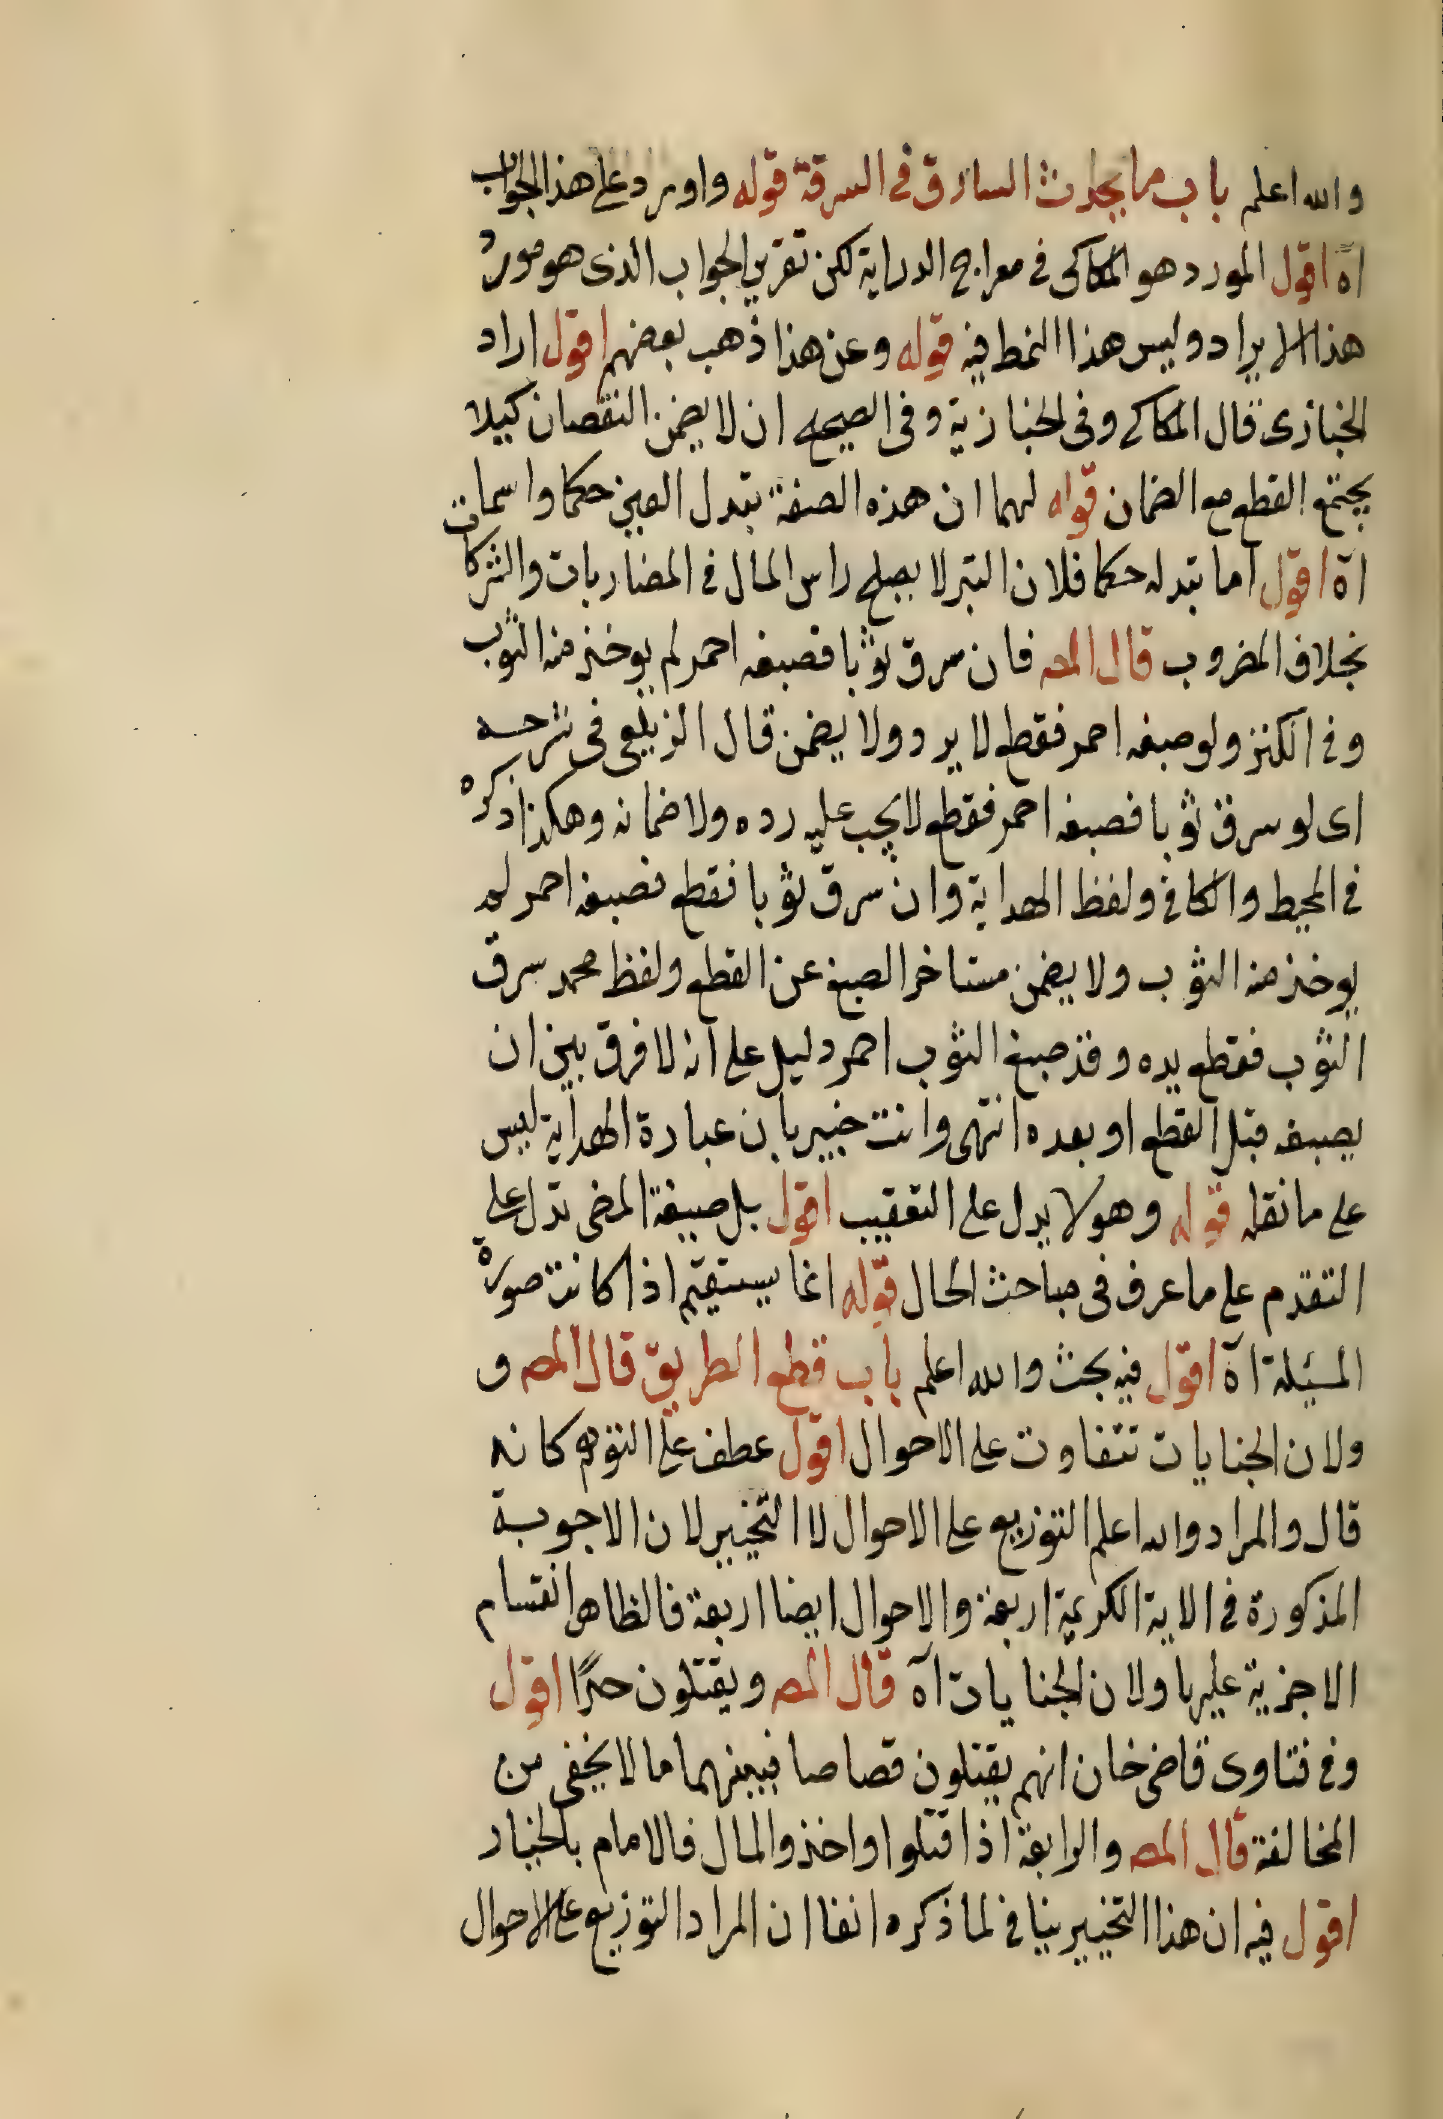 والله اعلم باب ما يحدث السارق في السرقة قوله واورد على هذا الجواب
اه اقول المورد هو الكاكى في معراج الدراية لكن تقرير الجواب الذى هو مورد
هذا الايراد وليس هذا النمط فيه قوله وعن هذا ذهب بعضهم اقول اراد
الخبازى قال الكاكى وفى الخبازية وفى الصحيح ان لا يضمن النقصان كيلا
يجتمع القطع مع الضمان قوله لهما ان هذه الصنعة تبدل العين حكما واسما
اه اقول اما تبدله حكما فلان التبر لا يصلح راس المال في المضاربات والشركات
بخلاف المضروب قال المصـ فان سرق ثوبا فصبغه احمر لم يوخذ منه الثوب
وفي الكنز ولو صبغه احمر فقطع لا يرد ولا يضمن قال الزيلعى فى شرحه
اى لو سرق ثوبا فصبغه احمر فقطع لا يجب عليه رده ولا ضمانه وهكذا ذكره
في المحيط والكافي ولفظ الهداية وان سرق ثوبا فقطع فصبغه احمر لم
يوخذ منه الثوب ولا يضمن متاخر الصبغ عن القطع ولفظ محمد سرق
الثوب فقطع يده وقد صبغ الثوب احمر دليل على انه لا فرق بين ان
يصبغه قبل القطع او بعده انتهى وانت خبير بان عبارة الهداية ليس
على ما نقله قوله وهو لا يدل على التعقيب اقول بل صيغة المضى تدل على
التقدم على ما عرف فى مباحث الحال قوله انما يستقيم اذا كانت صورة
المسئلة اه اقول فيه بحث والله اعلم باب قطع الطريق قال المصـ و
ولان الجنايات تتفاوت على الاحوال اقول عطف على التوهم كانه
قال والمراد والله اعلم التوزيع على الاحوال لا التخيير لان الاجوبة
المذكورة في الاية الكريمة اربعة والاحوال ايضا اربعة فالظاهر انقسام
الاجزية عليها ولان الجنايات اه قال المصـ ويقتلون حدًا اقول
وفي فتاوى قاضى خان انهم يقتلون قصاصا فبينهما ما لا يخفى من
المخالفة قال المصـ والرابعة اذا قتلوا واخذوا المال فالامام بالخيار
اقول فيه ان هذا التخيير ينافي لما ذكره انفا ان المراد التوزيع على الاحوال